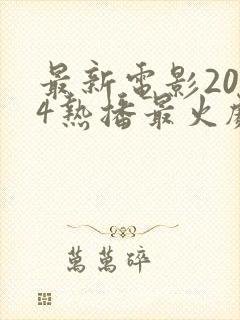 最新電影20
4熱播最火
萬萬碎